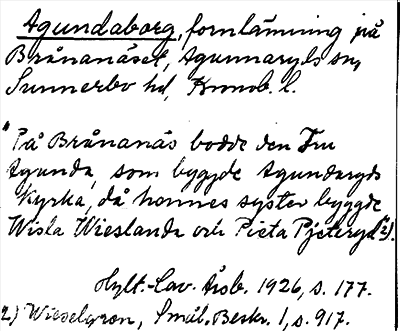 Agundaborg, fornlämning på
Brånanäset, Agunnaryds sn,
Sunnerbo hd, Kronob. l.
"På Brånanäs bodde den Fru
Agunda, som byggde Agundaryds
Kyrka, då honnes syster byggde
Wisla Wieslanda och Pieta Pjeteryd" 2).
Hylt.-Cav. Årsb. 1926, s. 177.
2) Wieselgren, Smål. Beskr. 1, s. 917.